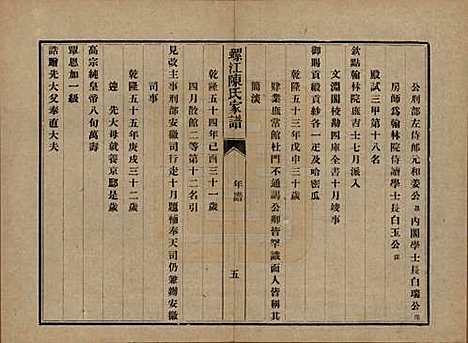 公刑部左侍郎元和姜公晟內閣學士長白瑞公保
房師爲翰林院侍讀學士長白玉公
殿試三甲第十八名
欽點翰林院庶吉士七月派入
文淵閣校勘四庫全書十月竣事
御賜貢緞紗各一疋及哈密瓜
乾隆五十三年戊申三十歲
肄業庶常館杜門不通謁公卿皆罕識面人皆稱其
簡淡
螺江陳氏家譜
年譜
五
乾隆五十四年己酉三十一歲
四月散館二等第十二名引
見改主事刑部安徽司行走十月題補奉天司仍兼辦安徽
司事
乾隆五十五年庚戌三十二歲
迎 先大母就養京邸是歲
高宗純皇帝八旬萬壽
覃恩加一級
誥贈先大父奉直大夫